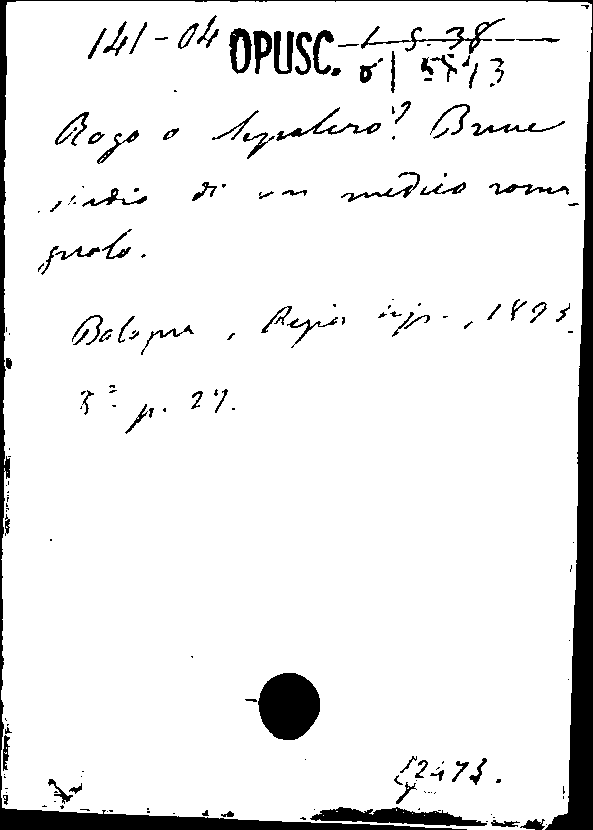 141-04 OPUSC. 1 5. 38
5513
Rogo o Sepolcro? Breve
studio di un medico roma-
gnolo.
Bologna, Regia tip., 1893.
8º p. 27.
2473.